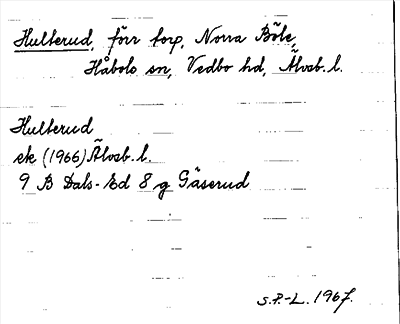 Hulterud, förr torp, Norra Böle,
Håbols sn, Vedbo hd, Älvsb. l.
Hulterud
ek (1966) Älvsb. l.
9 B Dals-Ed 8 g Gäserud
S.P.-L. 1967.